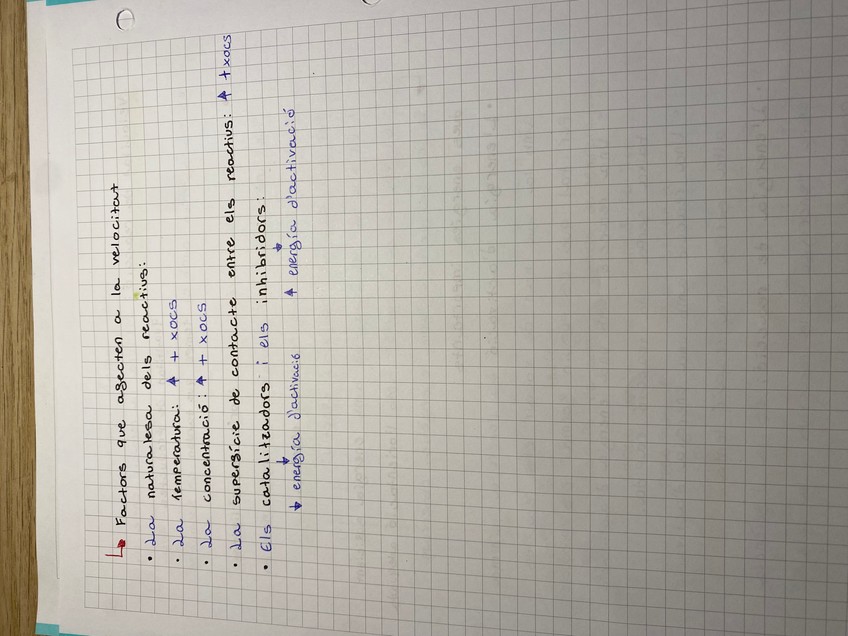 ↳ Factors que afecten a la velocitat
• La naturalesa dels reactius:
• La Temperatura: ↑ + xocs
• La concentració: ↑ + xocs
• La superfície de contacte entre els reactius: ↑ + xocs
• Els catalitzadors i els inhibridors:
↓ energía d'activació ↑ energía d'activació